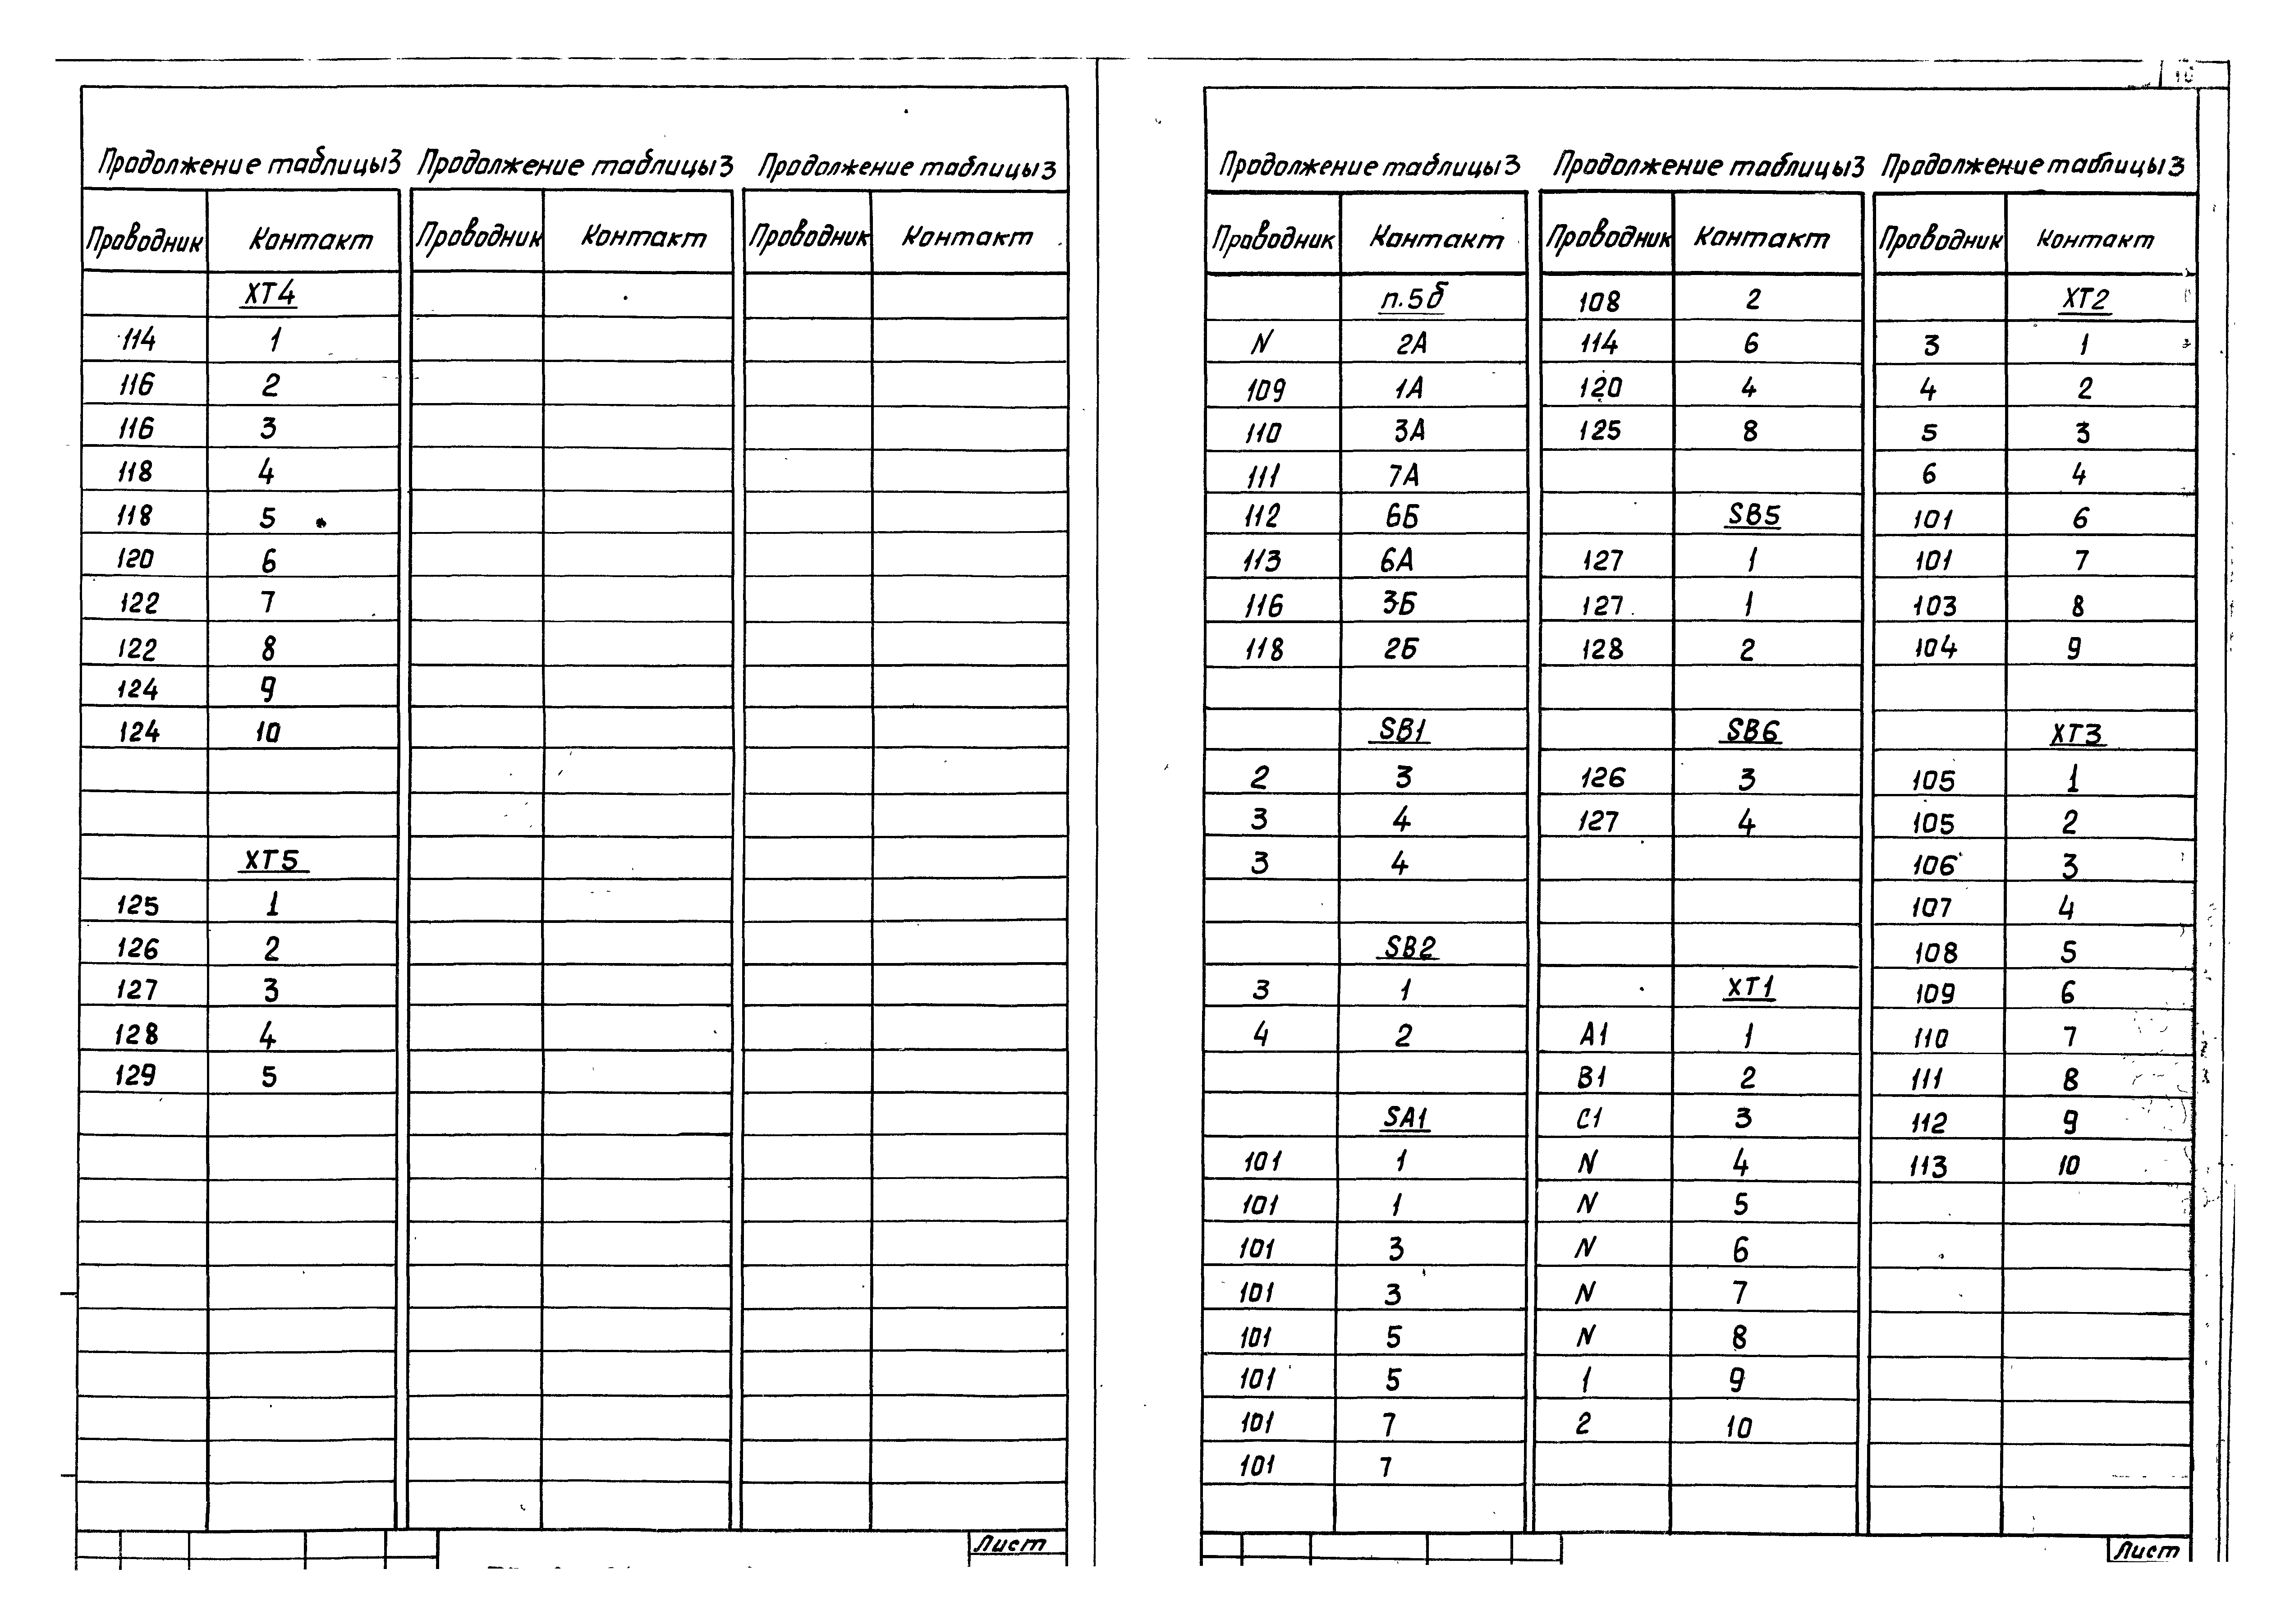 Продолжение таблицы 3 Продолжение таблицы 3 Продолжение таблицы 3
Проводник Контакт Проводник Контакт Проводник Контакт
XT4
114 1
116 2
116 3
118 4
118 5
120 6
122 7
122 8
124 9
124 10
XT5
125 1
126 2
127 3
128 4
129 5
Лист
Продолжение таблицы 3 Продолжение таблицы 3 Продолжение таблицы 3
Проводник Контакт Проводник Контакт Проводник Контакт
п.5б 108 2 XT2
N 2А 114 6 3 1
109 1А 120 4 4 2
110 3А 125 8 5 3
111 7А 6 4
112 6Б SB5 101 6
113 6А 127 1 101 7
116 3Б 127 1 103 8
118 2Б 128 2 104 9
SB1 SB6 XT3
2 3 126 3 105 1
3 4 127 4 105 2
3 4 106 3
107 4
SB2 108 5
3 1 XT1 109 6
4 2 A1 1 110 7
B1 2 111 8
SA1 C1 3 112 9
101 1 N 4 113 10
101 1 N 5
101 3 N 6
101 3 N 7
101 5 N 8
101 5 1 9
101 7 2 10
101 7
Лист